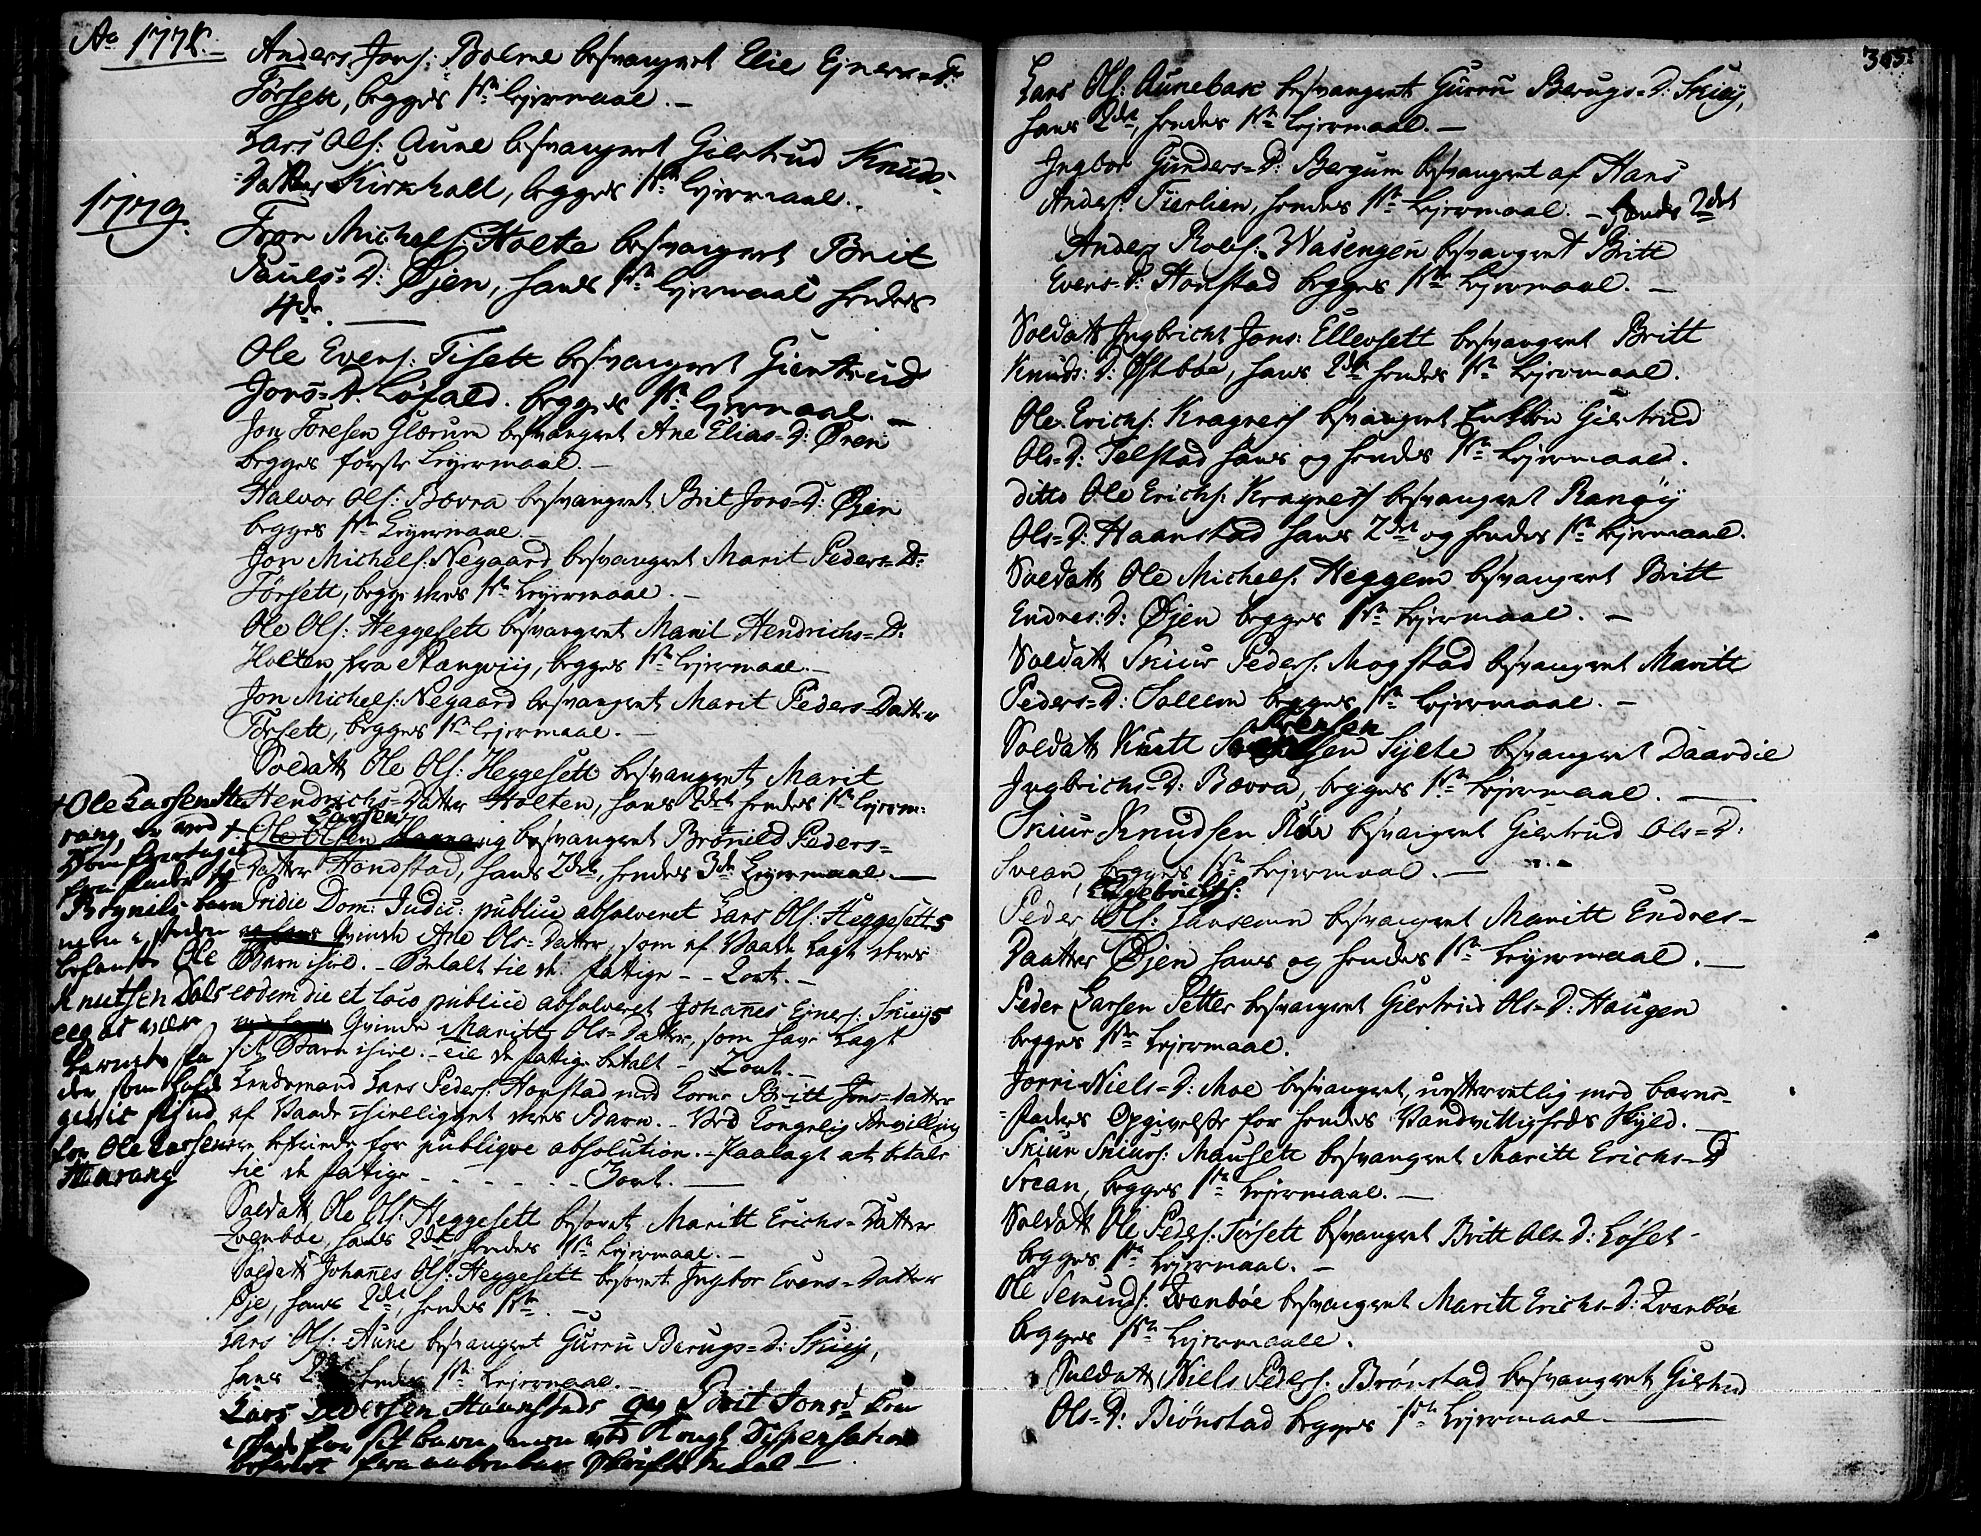 Ao 1778.
Anders Jons: Bolme besvangret Elie Ejners=D:
Torsett, begges 1ste Lejermaal. –
Lars Ols: Aune besvangret Giertrud Knuds=
=Datter Kirkhall, begges 1ste lejermaal.
1779.
Tron Michels: Holte besvangret Brit
Pauls=D: Øjen, hans 1ste lejermaal hendes
4de. —
Ole Evens: Tisett besvangret Giertrud
Jons=D: Løfald. begges 1ste lejermaal. –
Jon Toresen Glærum besvangret Ane Elias=D: Øren
begges første Leyermaal. –
Halvor Ols: Bævra besvangret Brit Jons=D: Øjen
begges 1ste Leyermaal.
Jon Michels: Negaard besvangret Marit Peders=D:
Torsett, begge deres 1ste Leyermaal. –
Ole Ols: Heggesett besvangret Marit Hendrichs=D:
Holten fra Stangvig, begges 1ste lejermaal. –
Jon Michels: Negaard besvangret Marit Peders=Datter
Torsett, begges 1ste lejermaal. –
Soldatt Ole Ols: Heggesett besvangret Marit
Hendrichs=Datter Holten, hans 2det hendes 1ste lejerm:
Larsen
+ Ole Olsen Harang besvangret Brønild Peders=
Datter Honstad, hans 2det, hendes 3de Leyermaal. —
Pridie Dom: Judic: publice absolveret Lars Ols: Heggesetts
og hans Qvinde Ane Ols=Datter, som af Vaade lagt deres
Barn ihiel. – Betalt til de fattige – – 2 ort. –
eodem die et loco publice absolveret Johanes Ejners: Skuiys
Qvinde Maritt Ols=Datter, som har lagt
sit Barn ihiel. – til de fattige betalt – 2 ort. –
Lendsmand Lars Peders: Honstad med Kone Britt Jons=datter
af Vaade ihielligget deres Barn. – Ved Kongelig Bevilling
er befriede for publique absolution. – Paalagt at betale
til de fattige - - - - - - 3 ort. —
Soldatt Ole Ols: Heggesett besovet Maritt Erichs=Datter
Qvenbøe, hans 2det hendes 1ste Lejermaal. –
Soldatt Johanes Ols: Heggesett besovet Ingbor Evens=Datter
Øje, hans 2det, hendes 1ste –
Lars Ols: Aune besvangret Gurru Berugs=D: Skuiy,
hans 2det hendes 1ste Lejermaal. –
Lars Pedersen Haanstad og Brit Jonsd
for sit barn, men ved Kongl. Dispensation
befriet fra aabenbar Skriftemaal –
+ Ole Larsen Ha
rang
Brynild
men
befantes Ole
Knutsen Dals
eeg at være
barnets fa
der som
for Ole Larsen
Harang
305.
Lars Ols: Aunebak besvangret Gurru Berugs=D: Skuiy,
hans 2det, hendes 1ste Lejermaal. —
Ingbor Gunders=D: Bergum besvangret af Hans
Anders: Tierlien, hendes 1ste Lejermaal. – hends 2det
Anders Rolfs: Wasengen besvangret Britt
Evens=D: Honstad begges 1ste Lejermaal. –
Soldatt Ingbricht Jons: Ellevsett besvangret Britt
Knuds: D: Østbøe, hans 2det hendes 1ste Lejermaal.
Ole Erichs: Kragness besvangret Enkken Giertrud
Ols=D: Telstad hans og hendes 1ste Lejermaal.
ditto Ole Erichs: Kragness besvangret Rangøy
Ols=D: Haanstad hans 2det og hendes 1ste lejermaal.
Soldatt Ole Michels: Heggem besvangret Britt
Endres: D: Øjen begges 1ste Lejermaal. –
Soldatt Skiur Peders: Mogstad besvangret Maritt
Peders=D: Sollem begges 1ste Lejermaal. –
Soldatt Knutt Sylte besvangret Daardie
Ingbrichs=D: Bævra, begges 1ste Lejermaal. —
Skiur Knudsen Røe besvangret Giertrud Ols=D:
Svean, begges 1ste Lejermaal. —
Engebrichts:
Peder Ols: Sansemm besvangret Maritt Endres-
Daatter Øjen hans og hendes 1ste Leyermaal. —
Peder Larsen Setter besvangret Giertrud Ols=D: Haugen
begges 1ste Lejermaal.
Jorri Niels=D: Moe besvangret, uefterretlig med barne-
=faders Opgivelse for hendes Vandvittigheds Skyld. —
Skiur Skiurs: Mausett besvangret Maritt Erichs=D
Svean, begges 1ste Lejermaal. —
Soldatt Ole Peders: Torsett besvangret Britt Ols=D: Løset-
begges 1ste Lejermaal. –
Ole Semunds: Qvenbøe besvangret Maritt Erichs=D: Qvenbøe
begges 1ste Lejermaal.
Soldatt Niels Peders: Brønstad besvangret Giertrud
Ols=D: Biønstad begges 1ste Lejermaal —